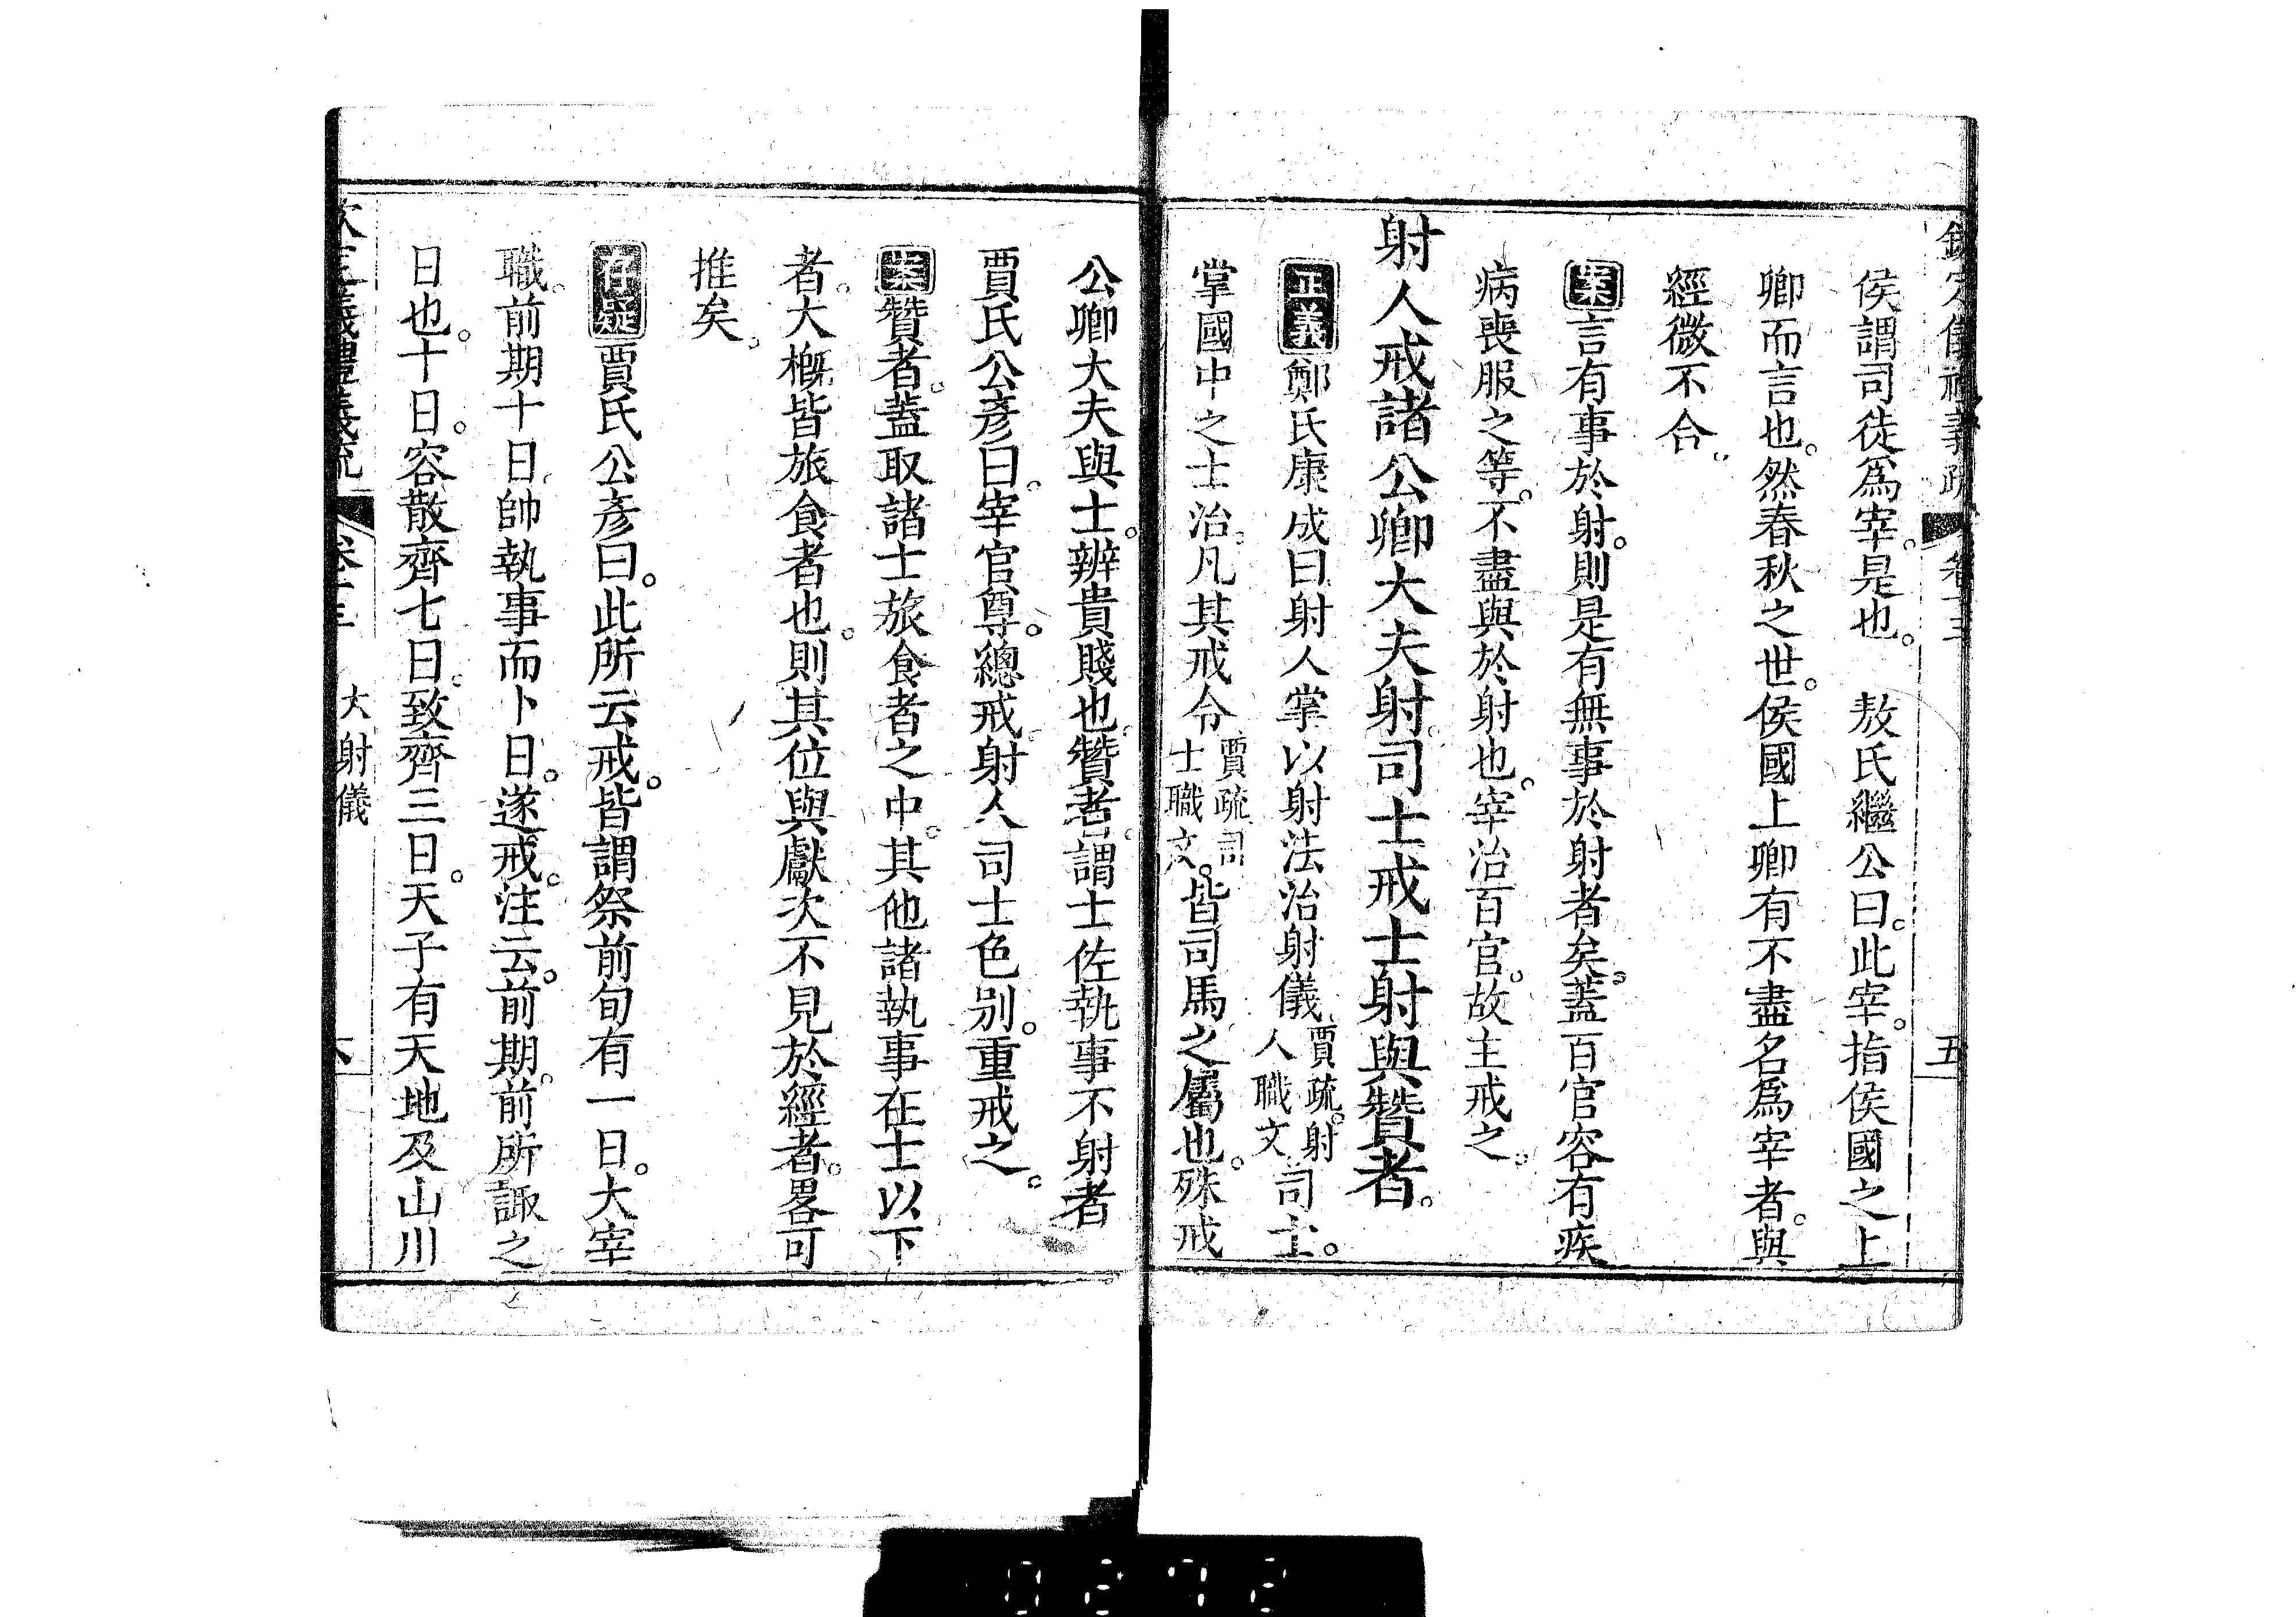 侯謂司徒為宰。是也。　敖氏繼公曰。此宰。指侯國之上
卿而言也。然春秋之世。侯國上卿有不盡名為宰者。與
經微不合。
案言有事於射。則是有無事於射者矣。蓋百官容有疾
病喪服之等。不盡與於射也。宰治百官。故主戒之。
射人戒諸公卿大夫射。司士戒士射與贊者。
正義鄭氏康成曰。射人掌以射法治射儀。賈疏。射人職文。司士。
掌國中之士治。凡其戒令。賈疏。司士職文。皆司馬之屬也。殊戒
公卿大夫與士。辨貴賤也。贊者。謂士佐執事不射者
賈氏公彥曰。宰官尊。總戒。射人司士色別。重戒之。
案贊者。蓋取諸士旅食者之中。其他諸執事在士以下
者。大概皆旅食者也。則其位與獻次不見於經者。畧可
推矣。
存疑賈氏公彥曰。此所云戒。皆謂祭前旬有一日。大宰
職。前期十日。帥執事而卜日。遂戒。注云。前期。前所諏之
日也。十日。容散齊七日。致齊三日。天子有天地及山川
大射儀
五